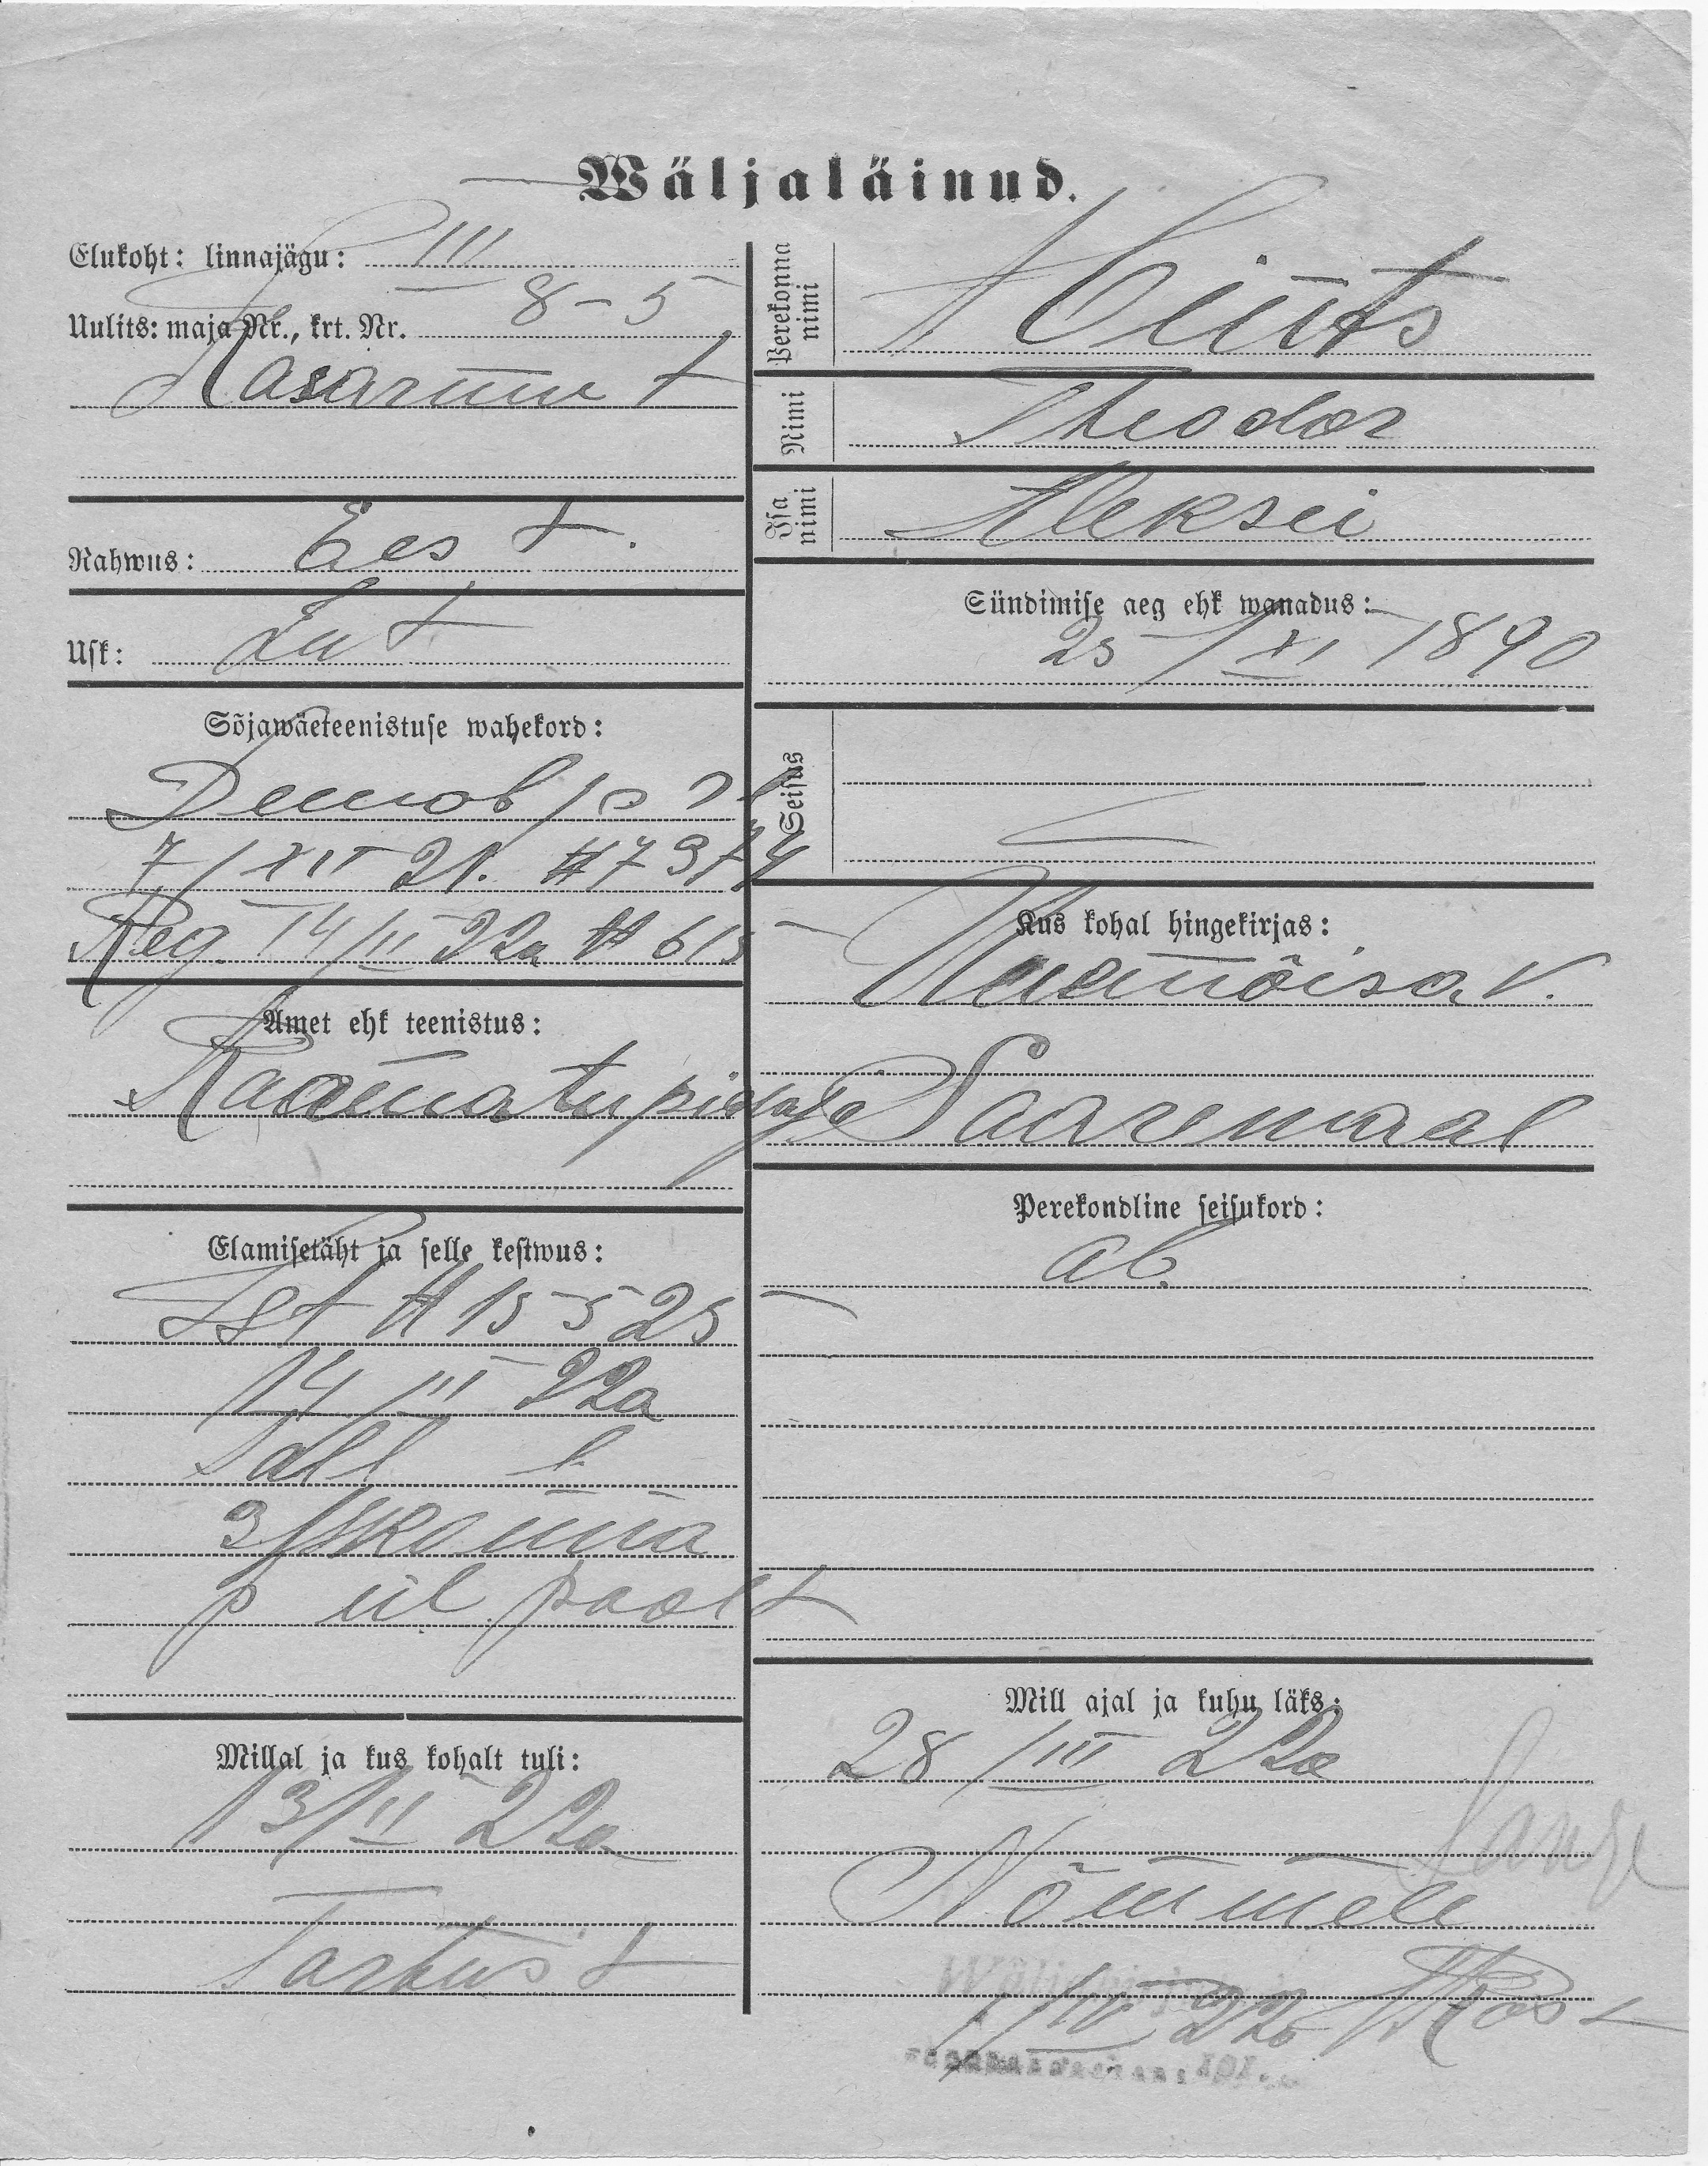 Wäljaläinud.
Elukoht: linnajägu: III
Uulits: maja Nr., krt. Nr. 8-5
Rahwus: Eest.
Usk: Lut
Sõjawäeteenistuse wahekord:
Demob
7/XII 21. # 7374
Reg. 14/II 22a # 615
Amet ehk teenistus:
Raamatupidaja
Elamisetäht ja selle kestwus:
Ist # 15525
14/III 22a
Tall l.
3 jskonna
p ül. poolt
Millal ja kus kohalt tuli:
13/II 22a
Tartust
Perekonna nimi
Nimi Theodor
Isa nimi Aleksei
Sündimise aeg ehk wanadus:
25/XI 1890
Seisus
Kus kohal hingekirjas:
v.
Saaremaal
Perekondline seisukord:
ab.
Mill ajal ja kuhu läks:
28/III 22a
Nõmmele